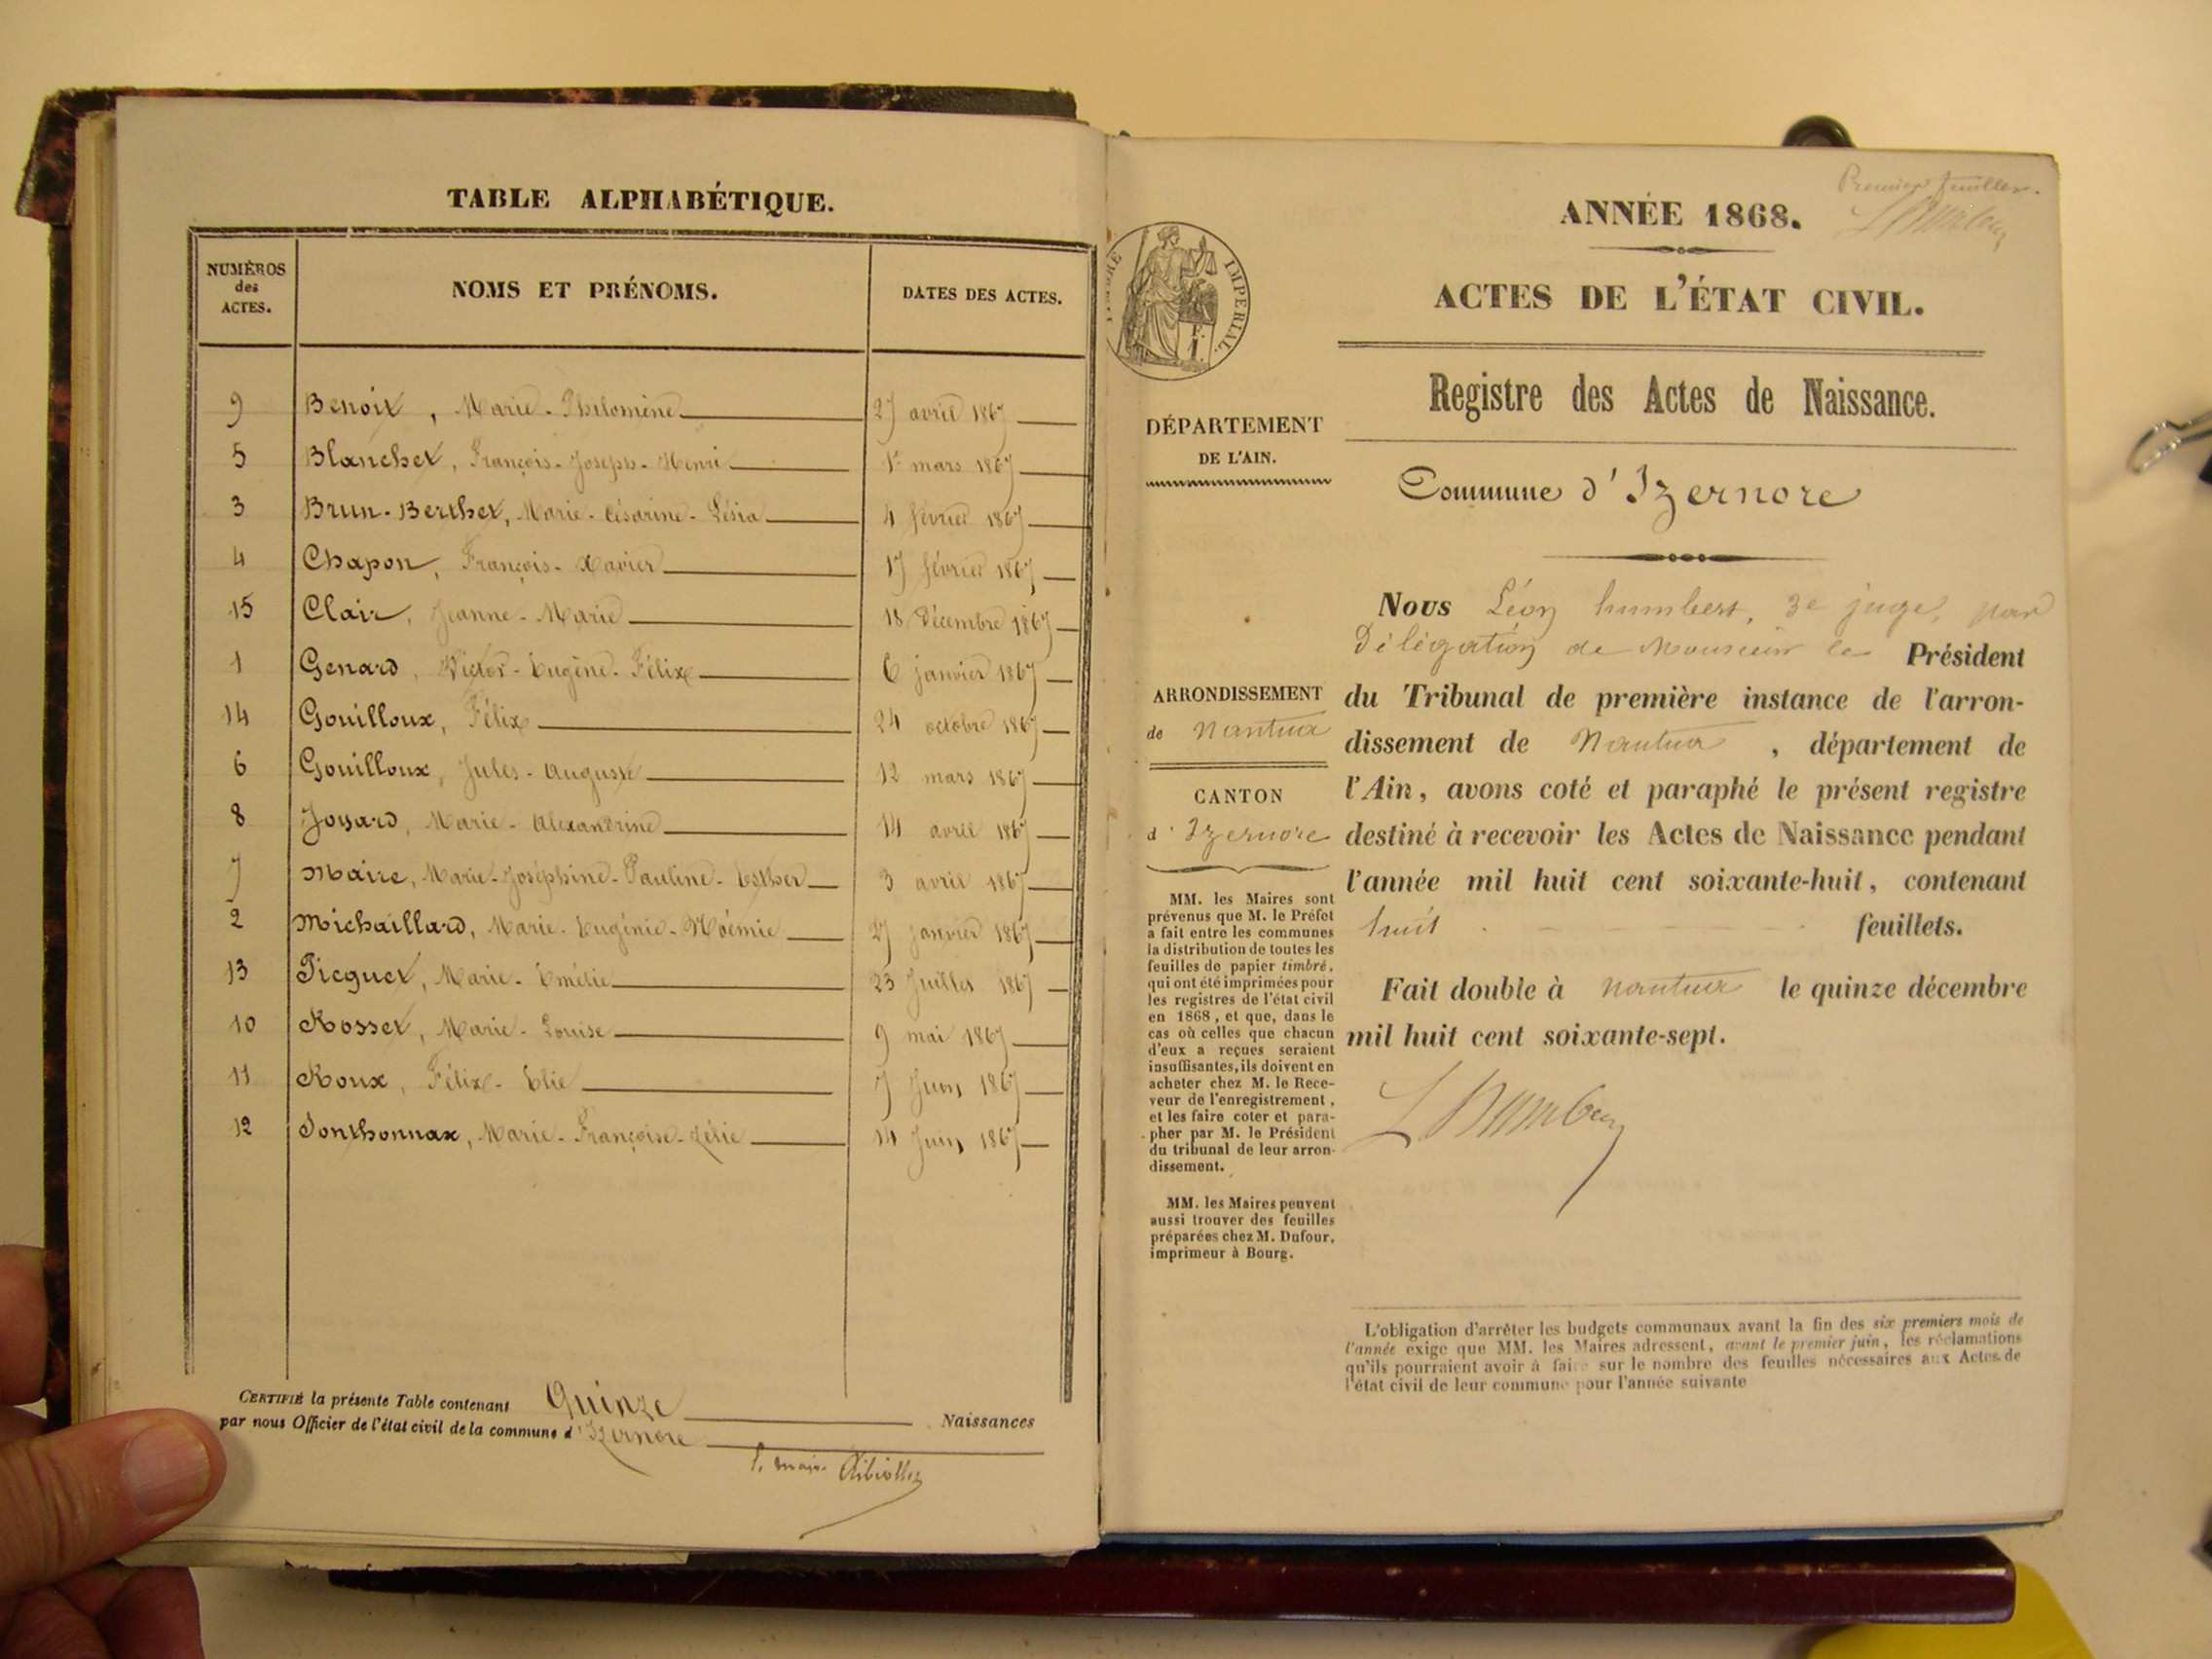 TABLE ALPHABÉTIQUE.
NUMÉROS des ACTES. NOMS ET PRÉNOMS. DATES DES ACTES.
9 Benoit, Marie-Philomène 27 avril 1867
5 Blanchet, François-Joseph-Henri 1er mars 1867
3 Brun-Berthet, Marie-Césarine-Lésia 4 février 1867
4 Chapon, François-Xavier 17 février 1867
15 Clair, Jeanne-Marie 18 Décembre 1867
1 Genard, Victor-Eugène-Félix 6 janvier 1867
14 Gouilloux, Félix 24 octobre 1867
6 Gouilloux, Jules-Auguste 12 mars 1867
8 Joyard, Marie-Alexandrine 14 avril 1867
7 Maire, Marie-Joséphine-Pauline-Esther 3 avril 1867
2 Michaillard, Marie-Eugénie-Noémie 27 janvier 1867
13 Picquet, Marie-Emélie 23 Juillet 1867
10 Rosset, Marie-Louise 9 mai 1867
11 Roux, Félix-Elie 7 Juin 1867
12 Sonthonnax, Marie-Françoise-Lélie 14 Juin 1867
CERTIFIÉ la présente Table contenant Quinze Naissances
par nous Officier de l'état civil de la commune d'Izernore
le maire
Premier feuillet.
L Humbert
ANNÉE 1868.
ACTES DE L'ÉTAT CIVIL.
Registre des Actes de Naissance.
TIMBRE IMPERIAL.
DÉPARTEMENT
DE L'AIN.
Commune d'Izernore
ARRONDISSEMENT
de Nantua
CANTON
d'Izernore
MM. les Maires sont
prévenus que M. le Préfet
a fait entre les communes
la distribution de toutes les
feuilles de papier timbré,
qui ont été imprimées pour
les registres de l'état civil
en 1868, et que, dans le
cas où celles que chacun
d'eux a reçues seraient
insuffisantes, ils doivent en
acheter chez M. le Rece-
veur de l'enregistrement,
et les faire coter et para-
pher par M. le Président
du tribunal de leur arron-
dissement.
MM. les Maires peuvent
aussi trouver des feuilles
préparées chez M. Dufour,
imprimeur à Bourg.
Nous Léon humbert, 3e juge, par
Délégation de Monsieur le Président
du Tribunal de première instance de l'arron-
dissement de Nantua, département de
l'Ain, avons coté et paraphé le présent registre
destiné à recevoir les Actes de Naissance pendant
l'année mil huit cent soixante-huit, contenant
huit feuillets.
Fait double à Nantua le quinze décembre
mil huit cent soixante-sept.
L Humbert
L'obligation d'arrêter les budgets communaux avant la fin des six premiers mois de
l'année exige que MM. les Maires adressent, avant le premier juin, les réclamations
qu'ils pourraient avoir à faire sur le nombre des feuilles nécessaires aux Actes de
l'état civil de leur commune pour l'année suivante